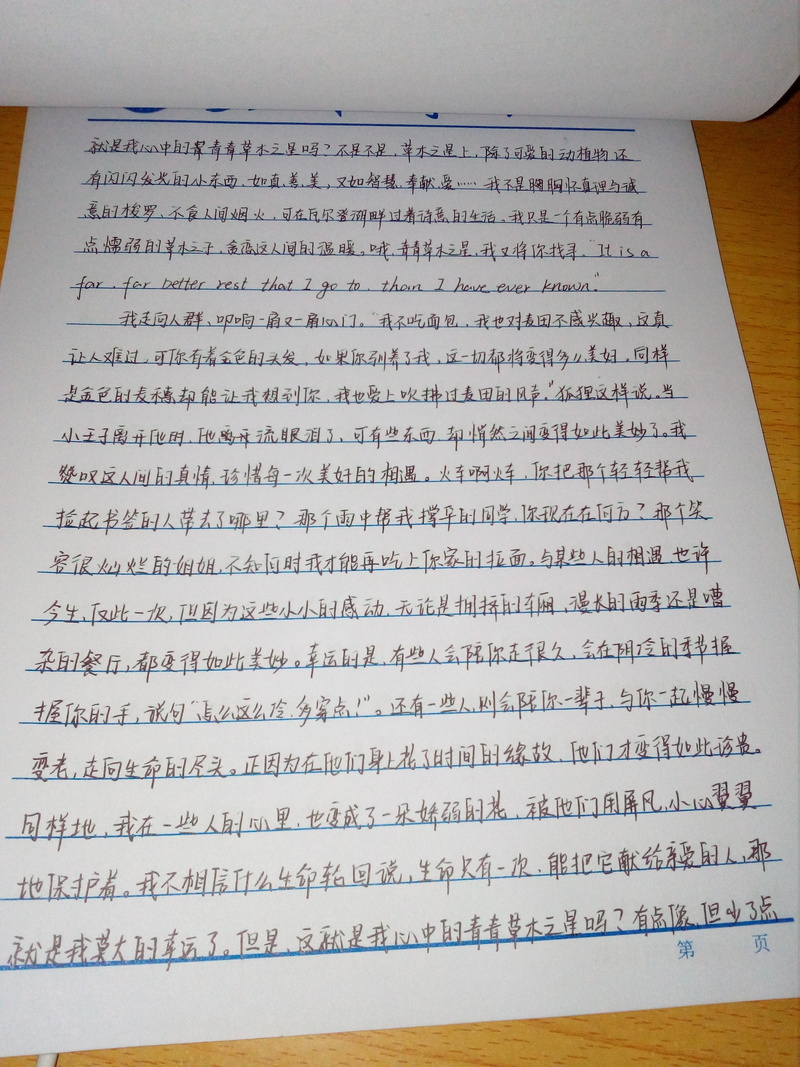 就是我心中的青青草木之星吗？不是不是，草木之星上，除了可爱的动植物还
有闪闪发光的小东西，如真、善、美，又如智慧、奉献、爱……我不是胸怀真理与诚
意的梭罗，不食人间烟火，可在瓦尔登湖畔过着诗意的生活。我只是一个有点脆弱有
点懦弱的草木之子，贪恋这人间的温暖。哦，青青草木之星，我又将你找寻。"It is a
far, far better rest that I go to, than I have ever known."
我走向人群，叩响一扇又一扇心门。"我不吃面包，我也对麦田不感兴趣，这真
让人难过，可你有着金色的头发，如果你驯养了我，这一切都将变得多么美好。同样
是金色的麦穗却能让我想到你，我也爱上吹拂过麦田的风声。"狐狸这样说。当
小王子离开他时，他离开流眼泪了，可有些东西，却悄然之间变得如此美妙了。我
赞叹这人间的真情，珍惜每一次美好的相遇。火车啊火车，你把那个轻轻帮我
捡起书签的人带去了哪里？那个雨中帮我撑伞的同学，你现在在何方？那个笑
容很灿烂的姐姐，不知何时我才能再吃上你家的拉面。与某些人的相遇，也许
今生，仅此一次，但因为这些小小的感动，无论是拥挤的车厢，漫长的雨季还是嘈
杂的餐厅，都变得如此美妙。幸运的是，有些人会陪你走很久，会在阴冷的季节握
握你的手，说句"怎么这么冷，多穿点！"。还有一些人，则会陪你一辈子，与你一起慢慢
变老，走向生命的尽头。正因为在他们身上花了时间的缘故，他们才变得如此珍贵。
同样地，我在一些人的心里，也变成了一朵娇弱的花，被他们用屏风，小心翼翼
地保护着。我不相信什么生命轮回说，生命只有一次，能把它献给亲爱的人，那
就是我莫大的幸运了。但是，这就是我心中的青青草木之星吗？有点像，但少了点
第 页